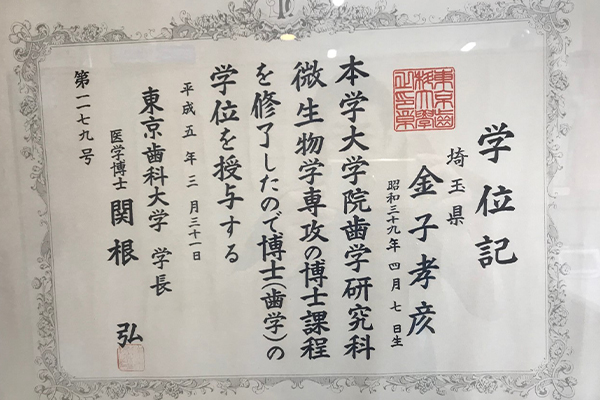 学位記
埼玉県
金子孝彦
昭和三十九年四月七日生
本学大学院歯学研究科
微生物学専攻の博士課程
を修了したので博士(歯学)の
学位を授与する
平成五年三月三十一日
東京歯科大学 学長
医学博士 関根 弘
第一一七九号